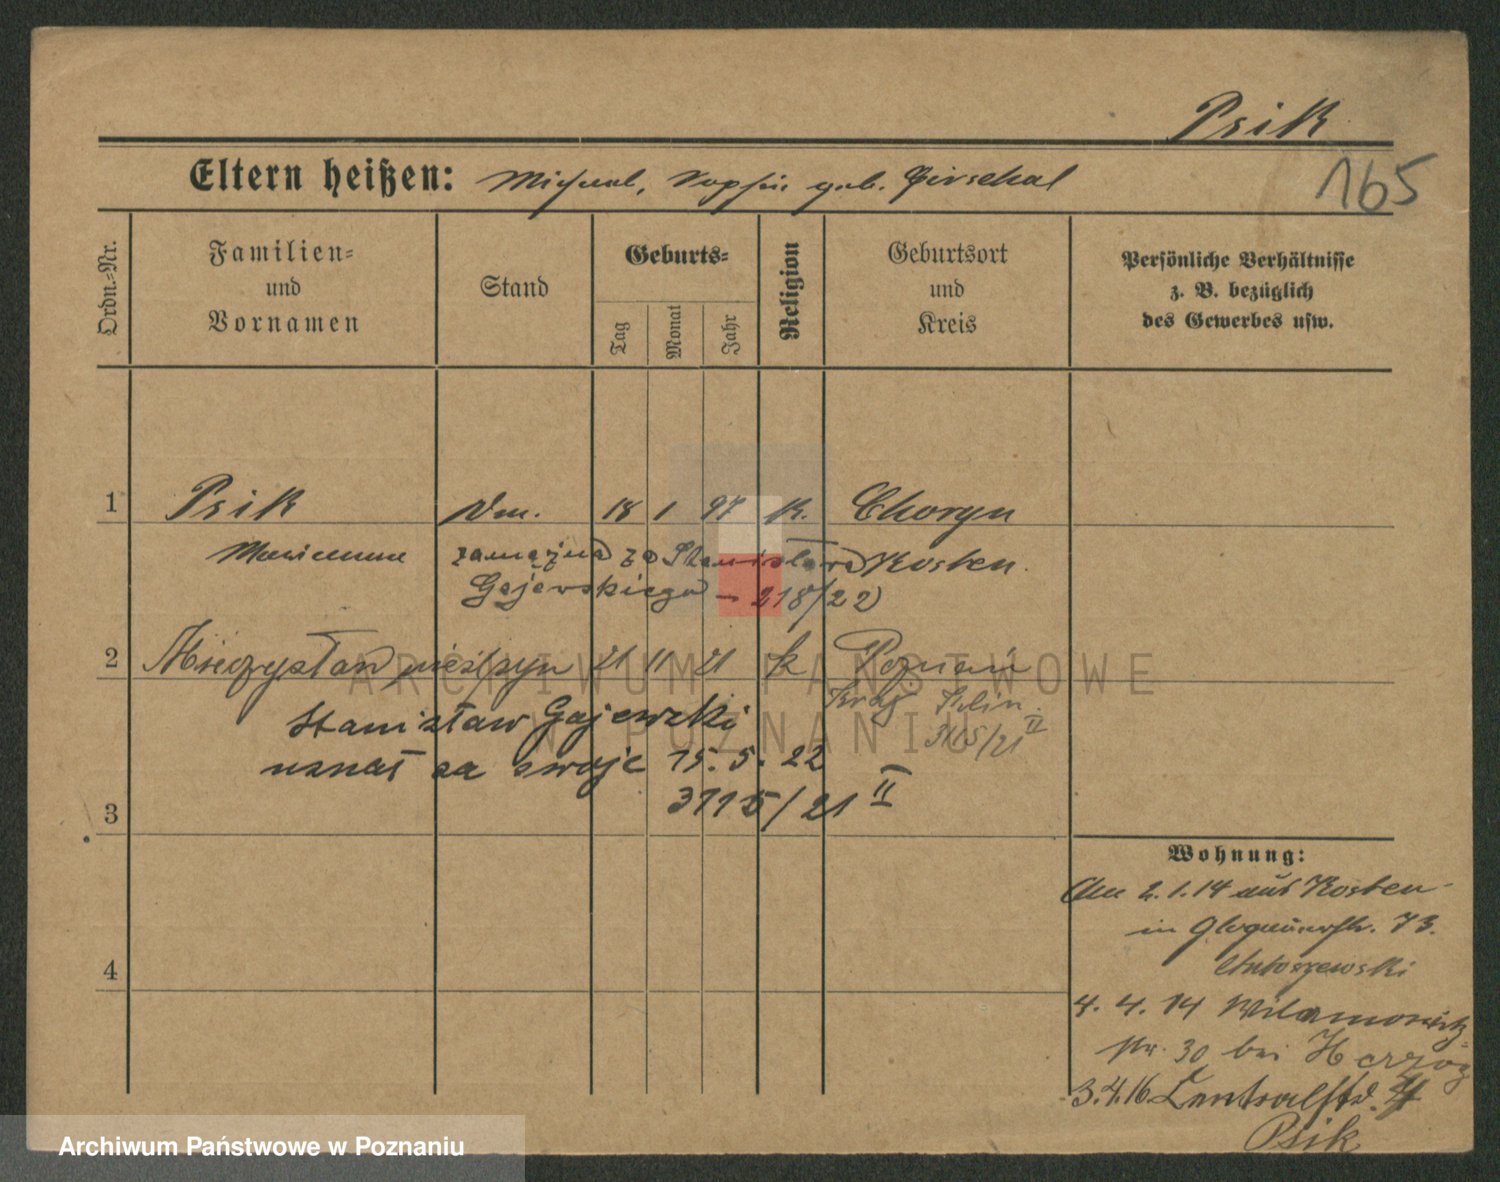 Psik
165
Eltern heißen: Michael, geb. Girschal
Ordn.-Nr.
Familien-
und
Vornamen
Stand
Geburts-
Tag
Monat
Jahr
Religion
Geburtsort
und
Kreis
Persönliche Verhältnisse
z. B. bezüglich
des Gewerbes usw.
1 Psik 18 1 97 K. Choryn
Marianna zamężna za Stanisława Kosten.
Gajewskiego – 218/22
2 Mieczysław nieślbyn 21 11 21 k Poznań
Stanisław Gajewski
3165/21 II
uznał za swoje 15. 5. 22
3115/21 II
3
4
Wohnung:
Am 2.1.14 aus Kosten
in Glogauerstr. 73.
Antoszewski
4. 4. 14 Wilamowitz-
str. 30 bei Herzog
3.4.16. Zentralstr. 4
Psik
ARCHIWUM PAŃSTWOWE
W POZNANIU
Archiwum Państwowe w Poznaniu